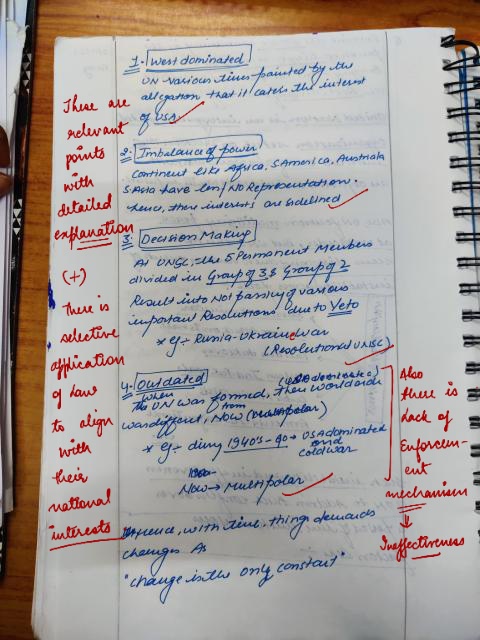 1. West dominated
UN various times painted by the
allegation that it caters the interest
of USA.
2. Imbalance of power
Continent like Africa, S America, Australia
S Asia have len/No Representation.
hence, there interests are sidelined
3. Decision Making
At UNSC, the 5 Permanent Members
divided in Group of 3 & Group of 2
Result into Not passing of various
important Resolutions due to Veto
* eg:- Russia-Ukraine war
(Resolution at UNSC)
4. Outdated
when the UN was formed, then world order
was different, Now from (Multipolar)
* eg:- during 1940's-90 → USA dominated
and cold war
Now → Multipolar
Hence, with time, things demands
changes As
"change is the only constant"
These are
relevant
points
with
detailed
explanation
(+)
There is
selective
application
of Law
to align
with
their
national
interests
Also
there is
Lack of
Enforcem-
ent
mechanism
↓
Ineffectiveness